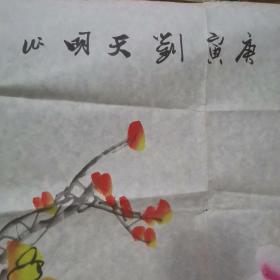 庚寅劉天明